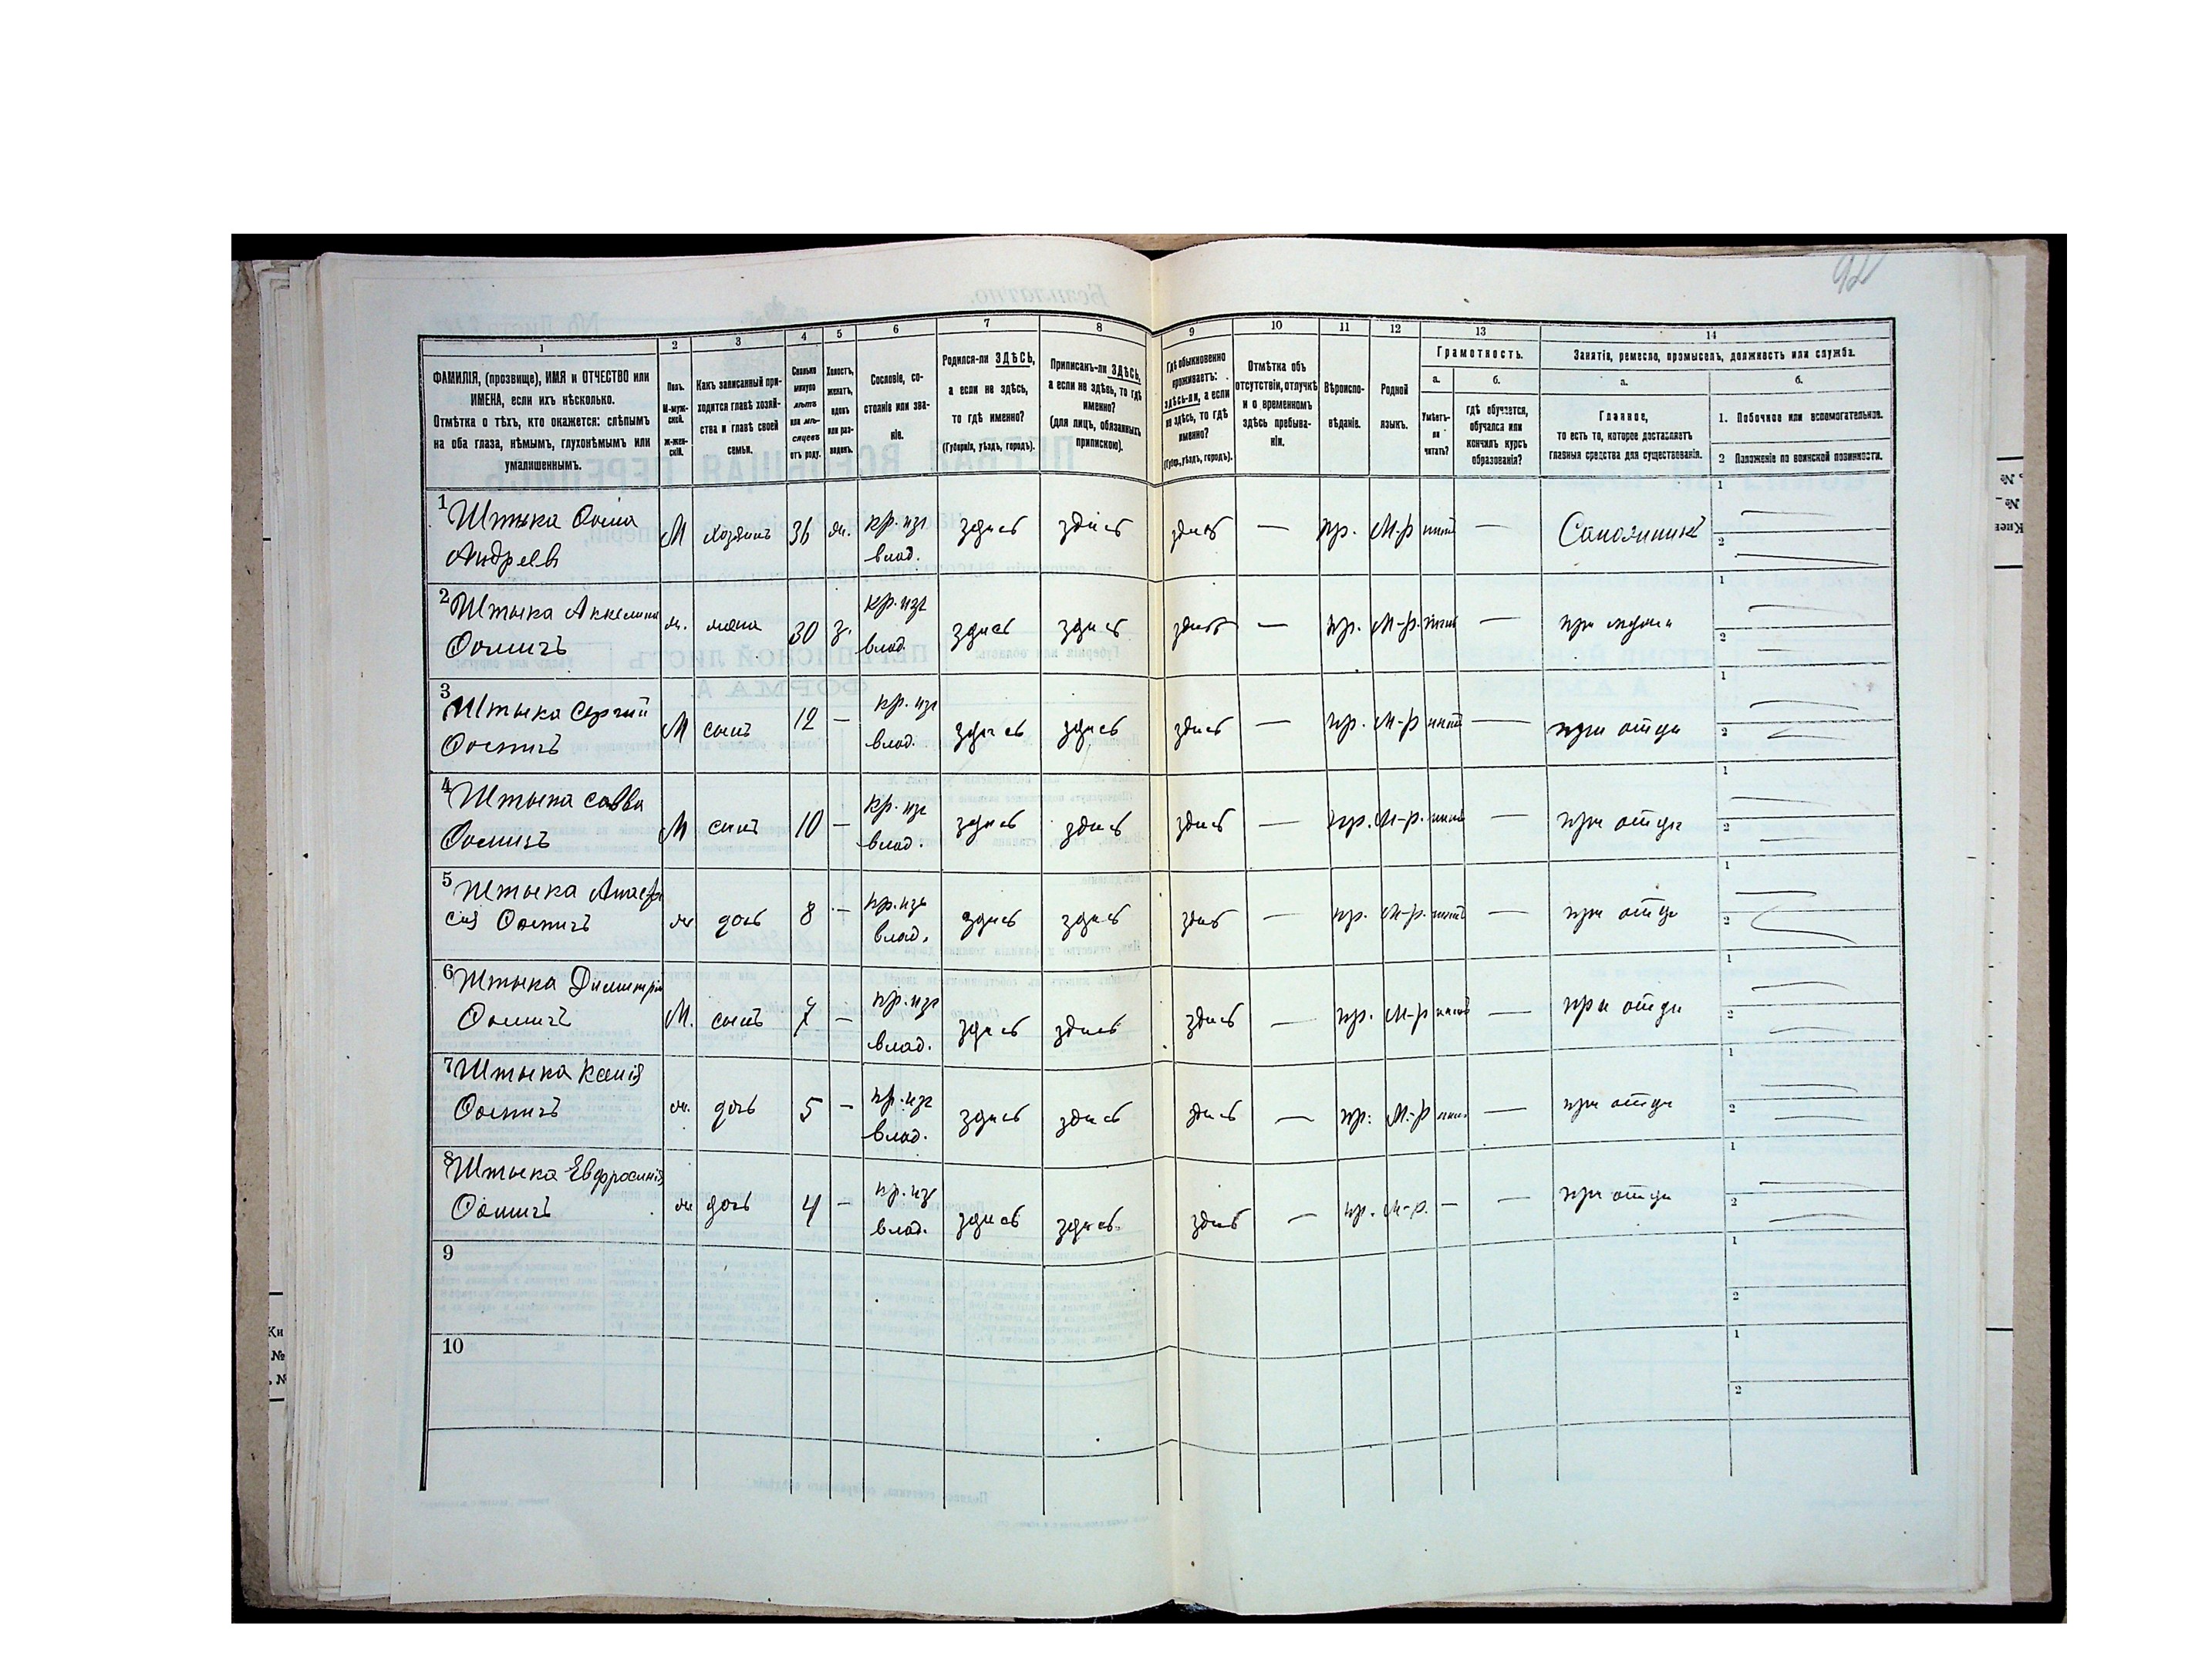 92
1 2 3 4 5 6 7 8 9 10 11 12 13 14
ФАМИЛІЯ, (прозвище), ИМЯ и ОТЧЕСТВО или
ИМЕНА, если ихъ нѣсколько.
Отмѣтка о тѣхъ, кто окажется: слѣпымъ
на оба глаза, нѣмымъ, глухонѣмымъ или
умалишеннымъ.
Полъ.
М-муж-
скій.
ж-жен-
скій.
Какъ записанный при-
ходится главѣ хозяй-
ства и главѣ своей
семьи.
Сколько
минуло
лѣтъ
или мѣ-
сяцевъ
отъ роду.
Холостъ,
женатъ,
вдовъ
или раз-
веденъ.
Сословіе, со-
стояніе или зва-
ніе.
Родился-ли ЗДѢСЬ,
а если не здѣсь,
то гдѣ именно?
(Губернія, уѣздъ, городъ).
Приписанъ-ли ЗДѢСЬ,
а если не здѣсь, то гдѣ
именно?
(для лицъ, обязанныхъ
припискою).
Гдѣ обыкновенно
проживаетъ:
здѣсь-ли, а если
не здѣсь, то гдѣ
именно?
(Губер., уѣздъ, городъ).
Отмѣтка объ
отсутствіи, отлучкѣ
и о временномъ
здѣсь пребыва-
ніи.
Вѣроиспо-
вѣданіе.
Родной
языкъ.
Грамотность.
а. б.
Умѣетъ-
ли
читать?
гдѣ обучается,
обучался или
кончилъ курсъ
образованія?
Занятія, ремесло, промыселъ, должность или служба.
а. б.
Главное,
то есть то, которое доставляетъ
главныя средства для существованія.
1. Побочное или вспомогательное.
2 Положеніе по воинской повинности.
1 Штыка Ѳома М хозяинъ 36 ж. кр. изъ здись здись здись — пр. М-р — 1
Андреевъ влад. 2
2 Штыка ж. жена 30 з. кр. изъ здись здись здись — пр. М-р. — при мужи 1
Ѳомичъ влад. 2
3 Штыка Сергий М сынъ 12 — кр. изъ здись здись здись — пр. М-р — при отци 1
Ѳомичъ влад. 2
4 Штыка Савва М сынъ 10 — кр. изъ здись здись здись — пр. М-р. — при отци 1
Ѳомичъ влад. 2
5 Штыка Анаста ж дочь 8 — кр. изъ здись здись здись — пр. М-р. — при отци 1
сія Ѳомичъ влад. 2
6 Штыка Димитрій М. сынъ 7 — кр. изъ здись здись здись — пр. М-р — при отци 1
Ѳомичъ влад. 2
7 Штыка ж. дочь 5 — кр. изъ здись здись здись — пр. М-р — при отци 1
Ѳомичъ влад. 2
8 Штыка Евфросинія ж дочь 4 — кр. изъ здись здись здись — пр. М-р. — — при отци 1
Ѳомичъ влад. 2
9 1
2
10 1
2